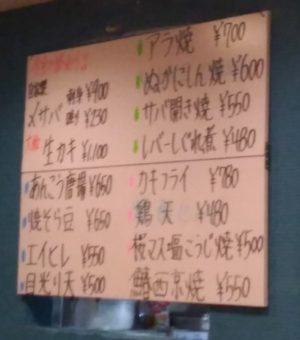 〆サバ
¥900
生カキ ¥1,100
あんこう唐揚 ¥650
焼そら豆 ¥650
エイヒレ ¥550
目光り天 ¥500
アラ焼 ¥700
ぬかにしん焼 ¥600
サバ開き焼 ¥550
レバーしぐれ煮 ¥480
カキフライ ¥780
鶏天 ¥480
桜マス塩こうじ焼 ¥500
鰆西京焼 ¥550